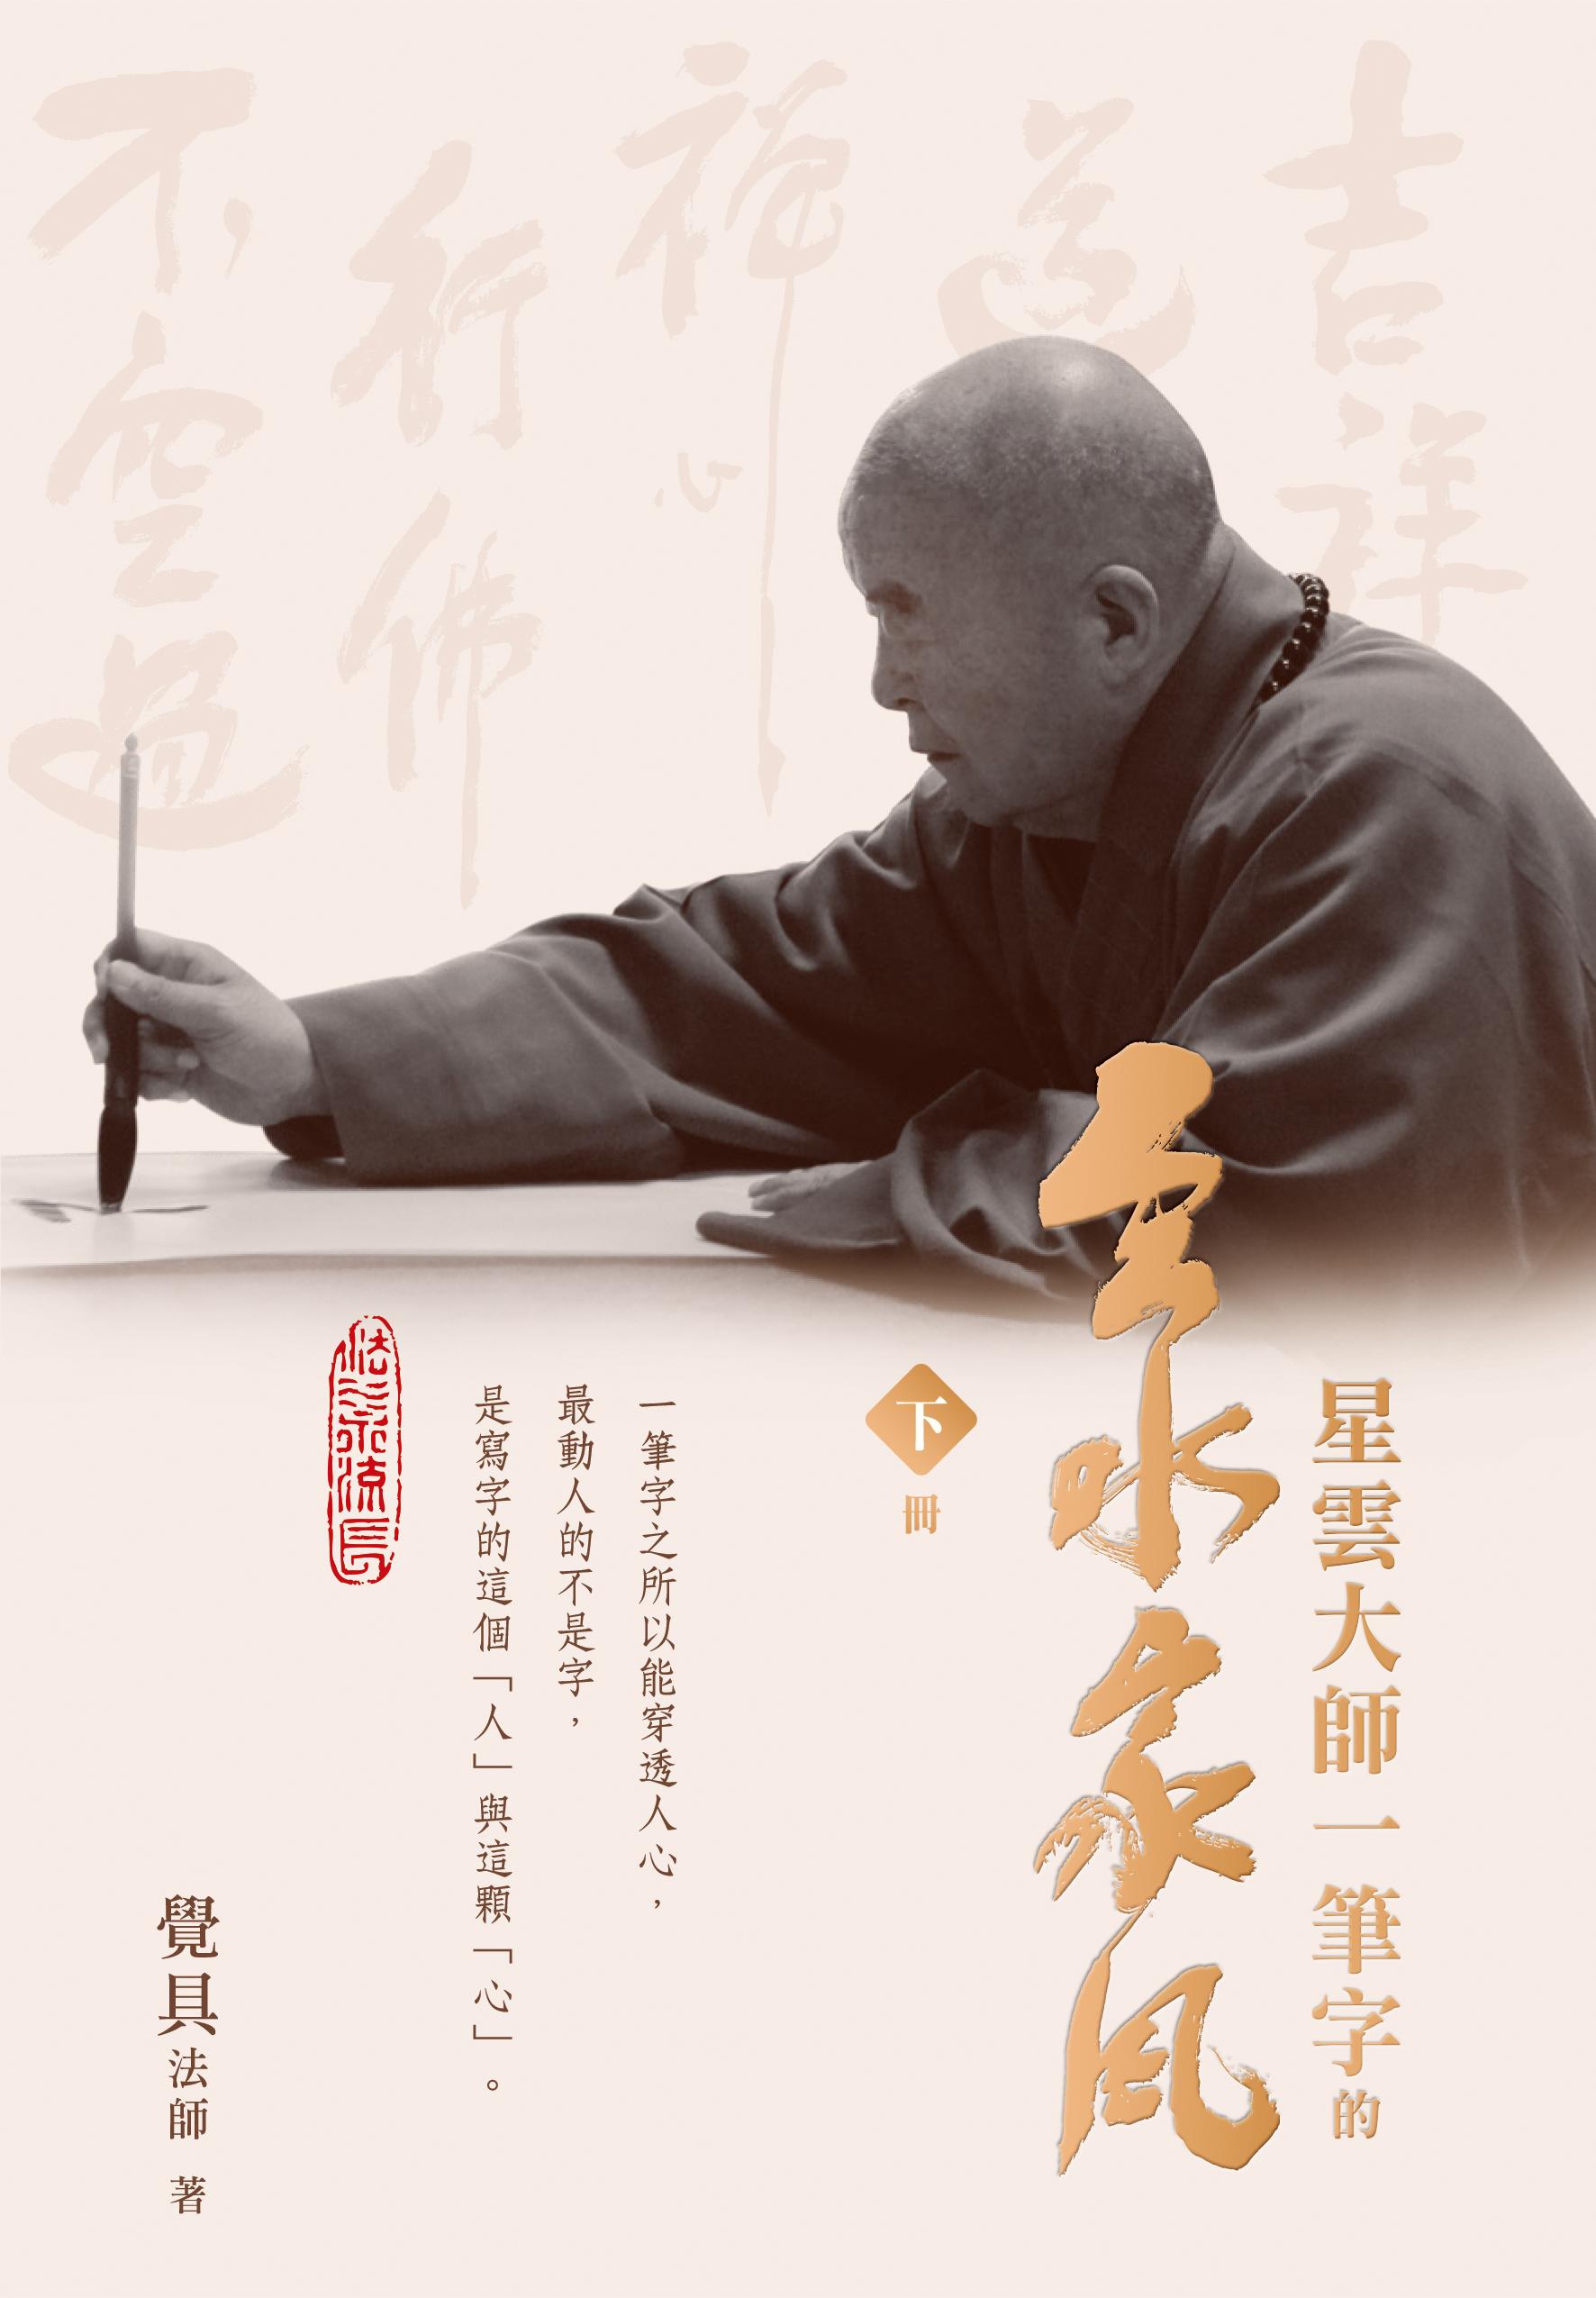 吉祥
道
禪心
行佛
不空過
星雲大師一筆字的
雲水家風
下冊
一筆字之所以能穿透人心,
最動人的不是字,
是寫字的這個「人」與這顆「心」。
法水流長
覺具法師 著